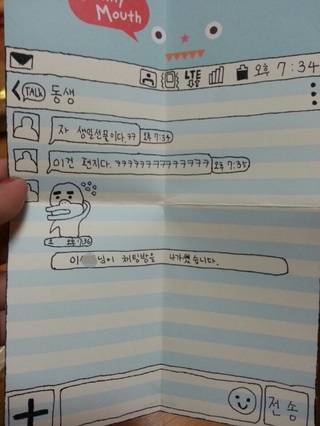 Mouth
LTE 오후 7:34
TALK 동생
자 생일선물이다.ㅋㅋ 오후 7:34
이건 편지다.ㅋㅋㅋㅋㅋㅋㅋㅋㅋㅋㅋㅋㅋㅋ 오후 7:35
오후 7:36
이 님이 채팅방을 나가셨습니다.
전송